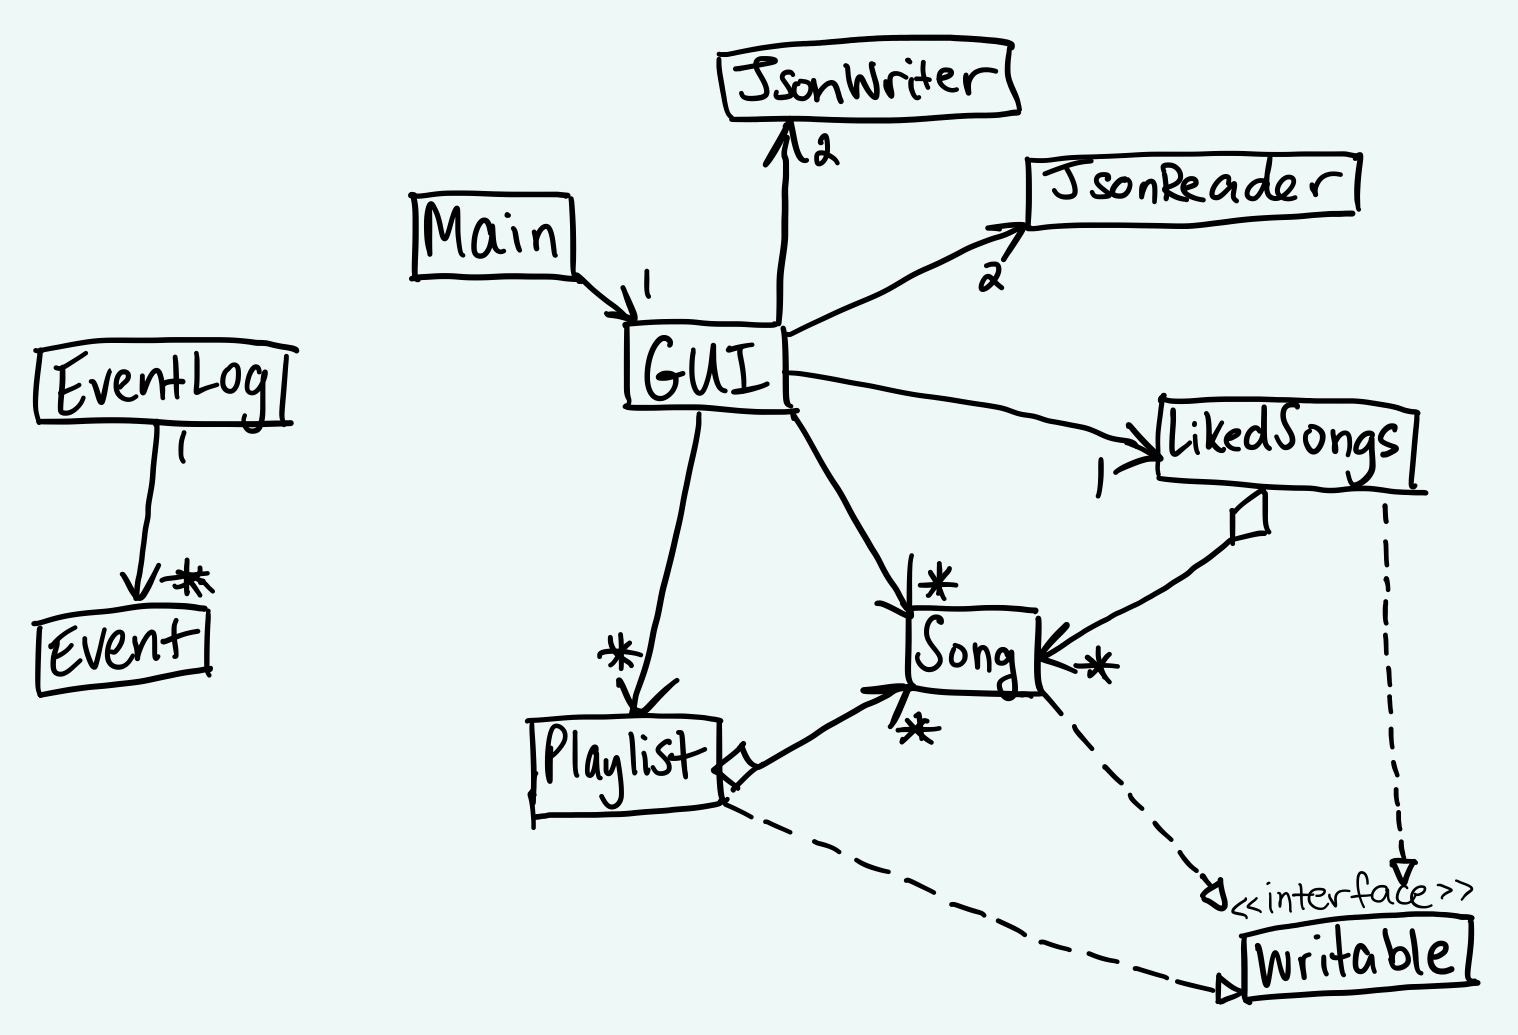 JsonWriter
2
JsonReader
2
Main
1
GUI
EventLog
1
*
Event
LikedSongs
1
*
Song
*
*
*
Playlist
<<interface>>
Writable